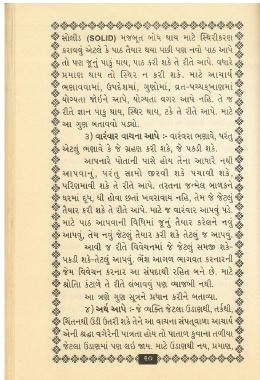 સોલીડ (SOLID) મજબૂત બોધ થાય માટે સ્થિરીકરણ
કરાવવું એટલે કે પાઠ તૈયાર થયા પછી પણ નવો પાઠ આપે
તો પણ જૂનું પાકું થાય, પાઠ કરી શકે તે રીતે આપે. વધારે
પ્રમાણ થાય તો સ્થિર ન કરી શકે. માટે આચાર્ય
ભણાવવામાં, ઉપદેશમાં, ગુણોમાં, વ્રત-પચ્ચક્ખાણમાં
યોગ્યતા જોઇને આપે, યોગ્યતા વગર આપે નહિ. તે જ
રીતે જ્ઞાન પાકું થાય, સ્થિર થાય, ટકે તે રીતે આપે. માટે
આ ગુણ બતાવવો પડ્યો.
૩) વારંવાર વાચના આપે :- વારંવરા ભણાવે, પરંતુ
એટલું ભણાવે કે જે ગ્રહણ કરી શકે, જે પકડી શકે.
આપનારે પોતાની પાસે હોય તેના આધારે નથી
આપવાનું, પરંતુ સામો જીરવી શકે પચાવી શકે,
પરિણમાવી શકે તે રીતે આપે. તરતના જન્મેલ બાળકને
ઘરમાં દૂધ, ઘી હોવા છતાં ખવરાવાય નહિ, તેમ જે જેટલું
તૈયાર કરી શકે તે રીતે આપે. માટે જ વારંવાર આપવું પડે.
માટે પાઠ આપવાની વિધિમાં જૂનું તૈયાર કરેલને નવું
આપવું, તેમ નવું જેટલું તૈયાર કરી શકે તેટલું જ આપવું.
આવી જ રીતે વિવેચનમાં જે જેટલું સમજી શકે-
પકડી શકે-તેટલું આપવું. ભેંશ આગળ ભાગવત કરનારની
જેમ વિવેચન કરનાર આ સંપદાથી રહિત બને છે. માટે
શ્રોતિા કંટાળે તે રીતે લંબાવવું પણ વ્યાજબી નથી.
આ ત્રણે ગુણ સૂત્રને પ્રધાન કરીને બતાવ્યા.
૪) અર્થ આપે :- જે વ્યક્તિ જેટલા ઉંડાણથી, તર્કથી,
ચિંતનથી ઉંડી ઉતરી શકે તેને આ વાચના સંપત્વાળા આચાર્ય
એની શ્રદ્ધા વગેરેની પાત્રતા હોય તો પાતાળ કુવાના તળીયા
જેટલા ઉંડાણમાં પણ લઇ જાય. માટે ઉંડાણથી નય, પ્રમાણ,
૬૦